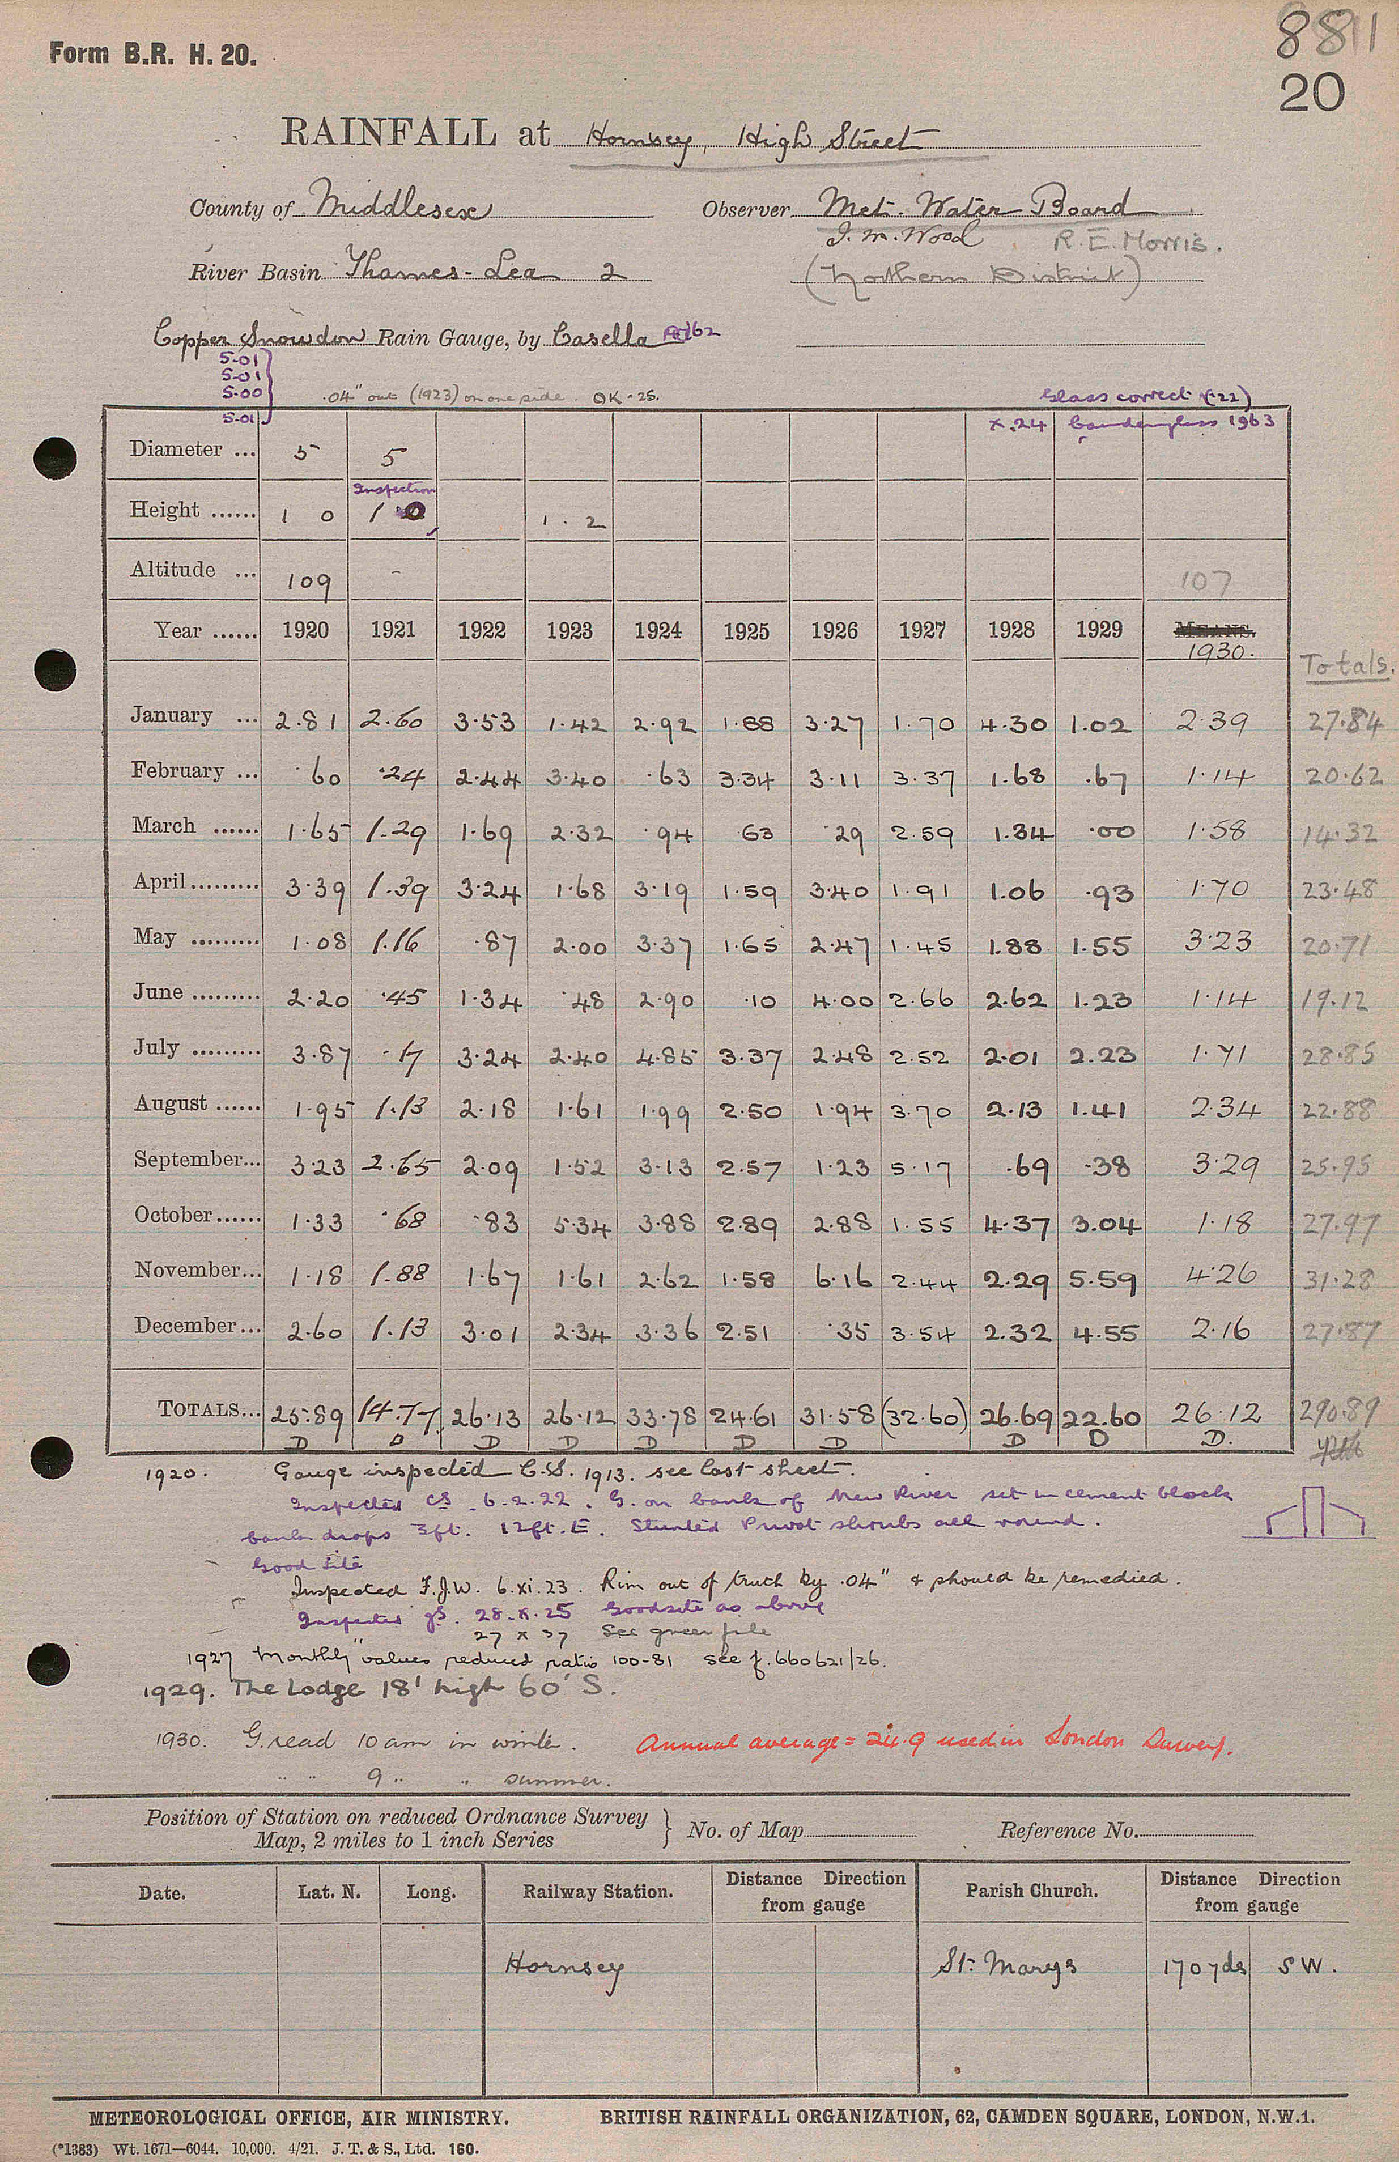 8811
Form B.R. H. 20.
20
RAINFALL at Hornsey, High Street
County of Middlesex Observer Met. Water Board
J. M. Wood R. E. Morris.
River Basin Thames-Lea 2 (Northern District)
Copper Snowdon Rain Gauge, by Casella
5.01
5.01
5.00
5.01
.04" out (1923) on one side. OK - 25. Glass correct (22)
x.24 Camden glass 1963
Diameter ... 5 5
Inspection
Height ...... 1 0 1 0 1 . 2
Altitude ... 109 - 107
Year ...... 1920 1921 1922 1923 1924 1925 1926 1927 1928 1929 MEANS.
1930. Totals.
January ... 2.81 2.60 3.53 1.42 2.92 1.88 3.27 1.70 4.30 1.02 2.39 27.84
February ... .60 .24 2.44 3.40 .63 3.34 3.11 3.37 1.68 .67 1.14 20.62
March ...... 1.65 1.29 1.69 2.32 .94 .63 .29 2.59 1.34 .00 1.58 14.32
April......... 3.39 1.39 3.24 1.68 3.19 1.59 3.40 1.91 1.06 .93 1.70 23.48
May ......... 1.08 1.16 .87 2.00 3.37 1.65 2.47 1.45 1.88 1.55 3.23 20.71
June ......... 2.20 .45 1.34 .48 2.90 .10 4.00 2.66 2.62 1.23 1.14 19.12
July ......... 3.87 .17 3.24 2.40 4.85 3.37 2.48 2.52 2.01 2.23 1.71 28.85
August ...... 1.95 1.13 2.18 1.61 1.99 2.50 1.94 3.70 2.13 1.41 2.34 22.88
September... 3.23 2.65 2.09 1.52 3.13 2.57 1.23 5.17 .69 .38 3.29 25.95
October...... 1.33 .68 .83 5.34 3.88 2.89 2.88 1.55 4.37 3.04 1.18 27.97
November... 1.18 1.88 1.67 1.61 2.62 1.58 6.16 2.44 2.29 5.59 4.26 31.28
December... 2.60 1.13 3.01 2.34 3.36 2.51 .35 3.54 2.32 4.55 2.16 27.87
TOTALS... 25.89 14.77 26.13 26.12 33.78 24.61 31.58 (32.60) 26.69 22.60 26.12 290.89
D D D D D D D D D D.
1920. Gauge inspected C.S. 1913. see last sheet.
Inspected CS 6.2.22. G. on bank of New River set in cement block
bank drops 3ft. 12ft. E. Stunted Privat shrubs all round.
Good site
Inspected F.J.W. 6.xi.23. Rim out of truth by .04" & should be remedied.
Inspected 28.x.25 Good site as above
27 x 37 See green file
1927 "Monthly" values reduced ratio 100-81 see f. 660621/26.
1929. The Lodge 18' high 60' S.
1930. G. read 10 am in winter. Annual average = 24.9 used in London Survey.
" " 9 " " summer.
Position of Station on reduced Ordnance Survey
Map, 2 miles to 1 inch Series } No. of Map Reference No.
Date. Lat. N. Long. Railway Station. Distance Direction from gauge Parish Church. Distance Direction from gauge
Hornsey St. Marys 170 yds SW.
METEOROLOGICAL OFFICE, AIR MINISTRY. BRITISH RAINFALL ORGANIZATION, 62, CAMDEN SQUARE, LONDON, N.W.1.
(*1383) Wt. 1671—6044. 10,000. 4/21. J. T. & S., Ltd. 160.